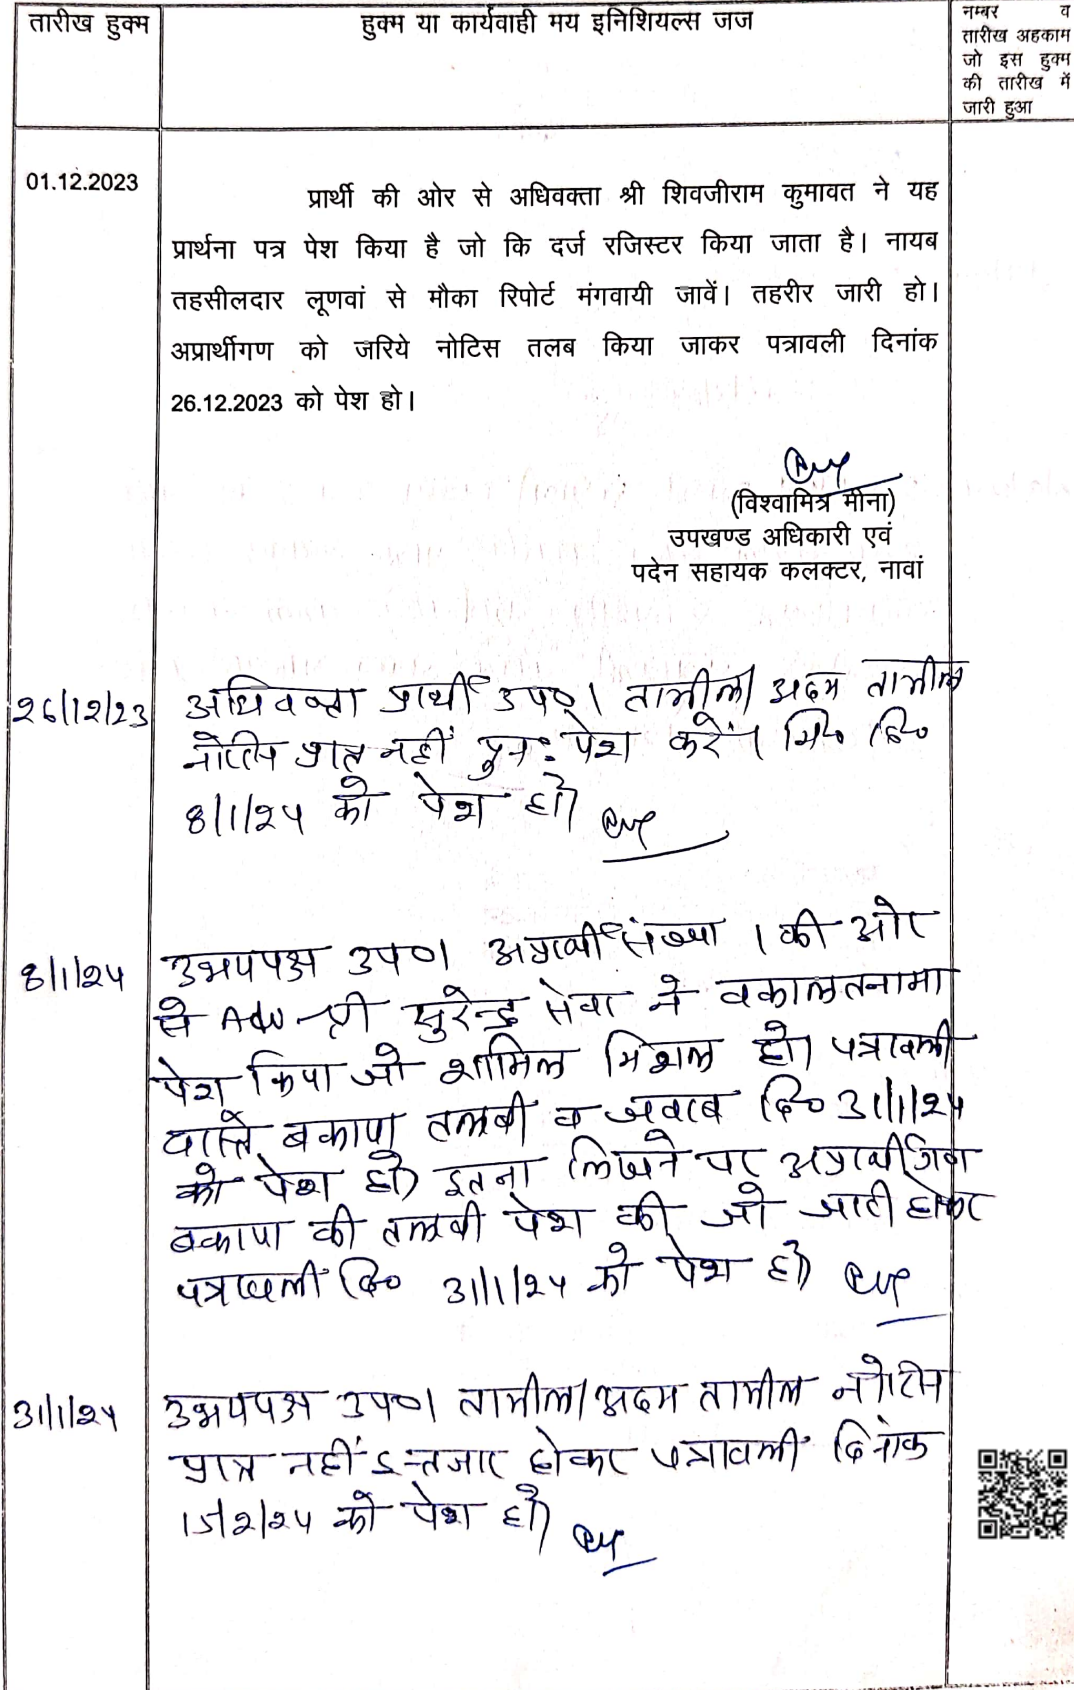 तारीख हुक्म
हुक्म या कार्यवाही मय इनिशियल्स जज
नम्बर व
तारीख अहकाम
जो इस हुक्म
की तारीख में
जारी हुआ
01.12.2023
प्रार्थी की ओर से अधिवक्ता श्री शिवजीराम कुमावत ने यह
प्रार्थना पत्र पेश किया है जो कि दर्ज रजिस्टर किया जाता है। नायब
तहसीलदार लूणवां से मौका रिपोर्ट मंगवायी जावें। तहरीर जारी हो।
अप्रार्थीगण को जरिये नोटिस तलब किया जाकर पत्रावली दिनांक
26.12.2023 को पेश हो।
(विश्वामित्र मीना)
उपखण्ड अधिकारी एवं
पदेन सहायक कलक्टर, नावां
26/12/23
अधिवक्ता प्रार्थी उप०। तामील/अदम तामील
नोटिस प्राप्त नहीं पुनः पेश करें। मि० दि०
8/1/24 को पेश हो।
8/1/24
उभयपक्ष उप०। अप्रार्थी संख्या 1 की ओर
से Adv श्री सुरेन्द्र सेवा ने वकालतनामा
पेश किया जो शामिल मिशल हो। पत्रावली
वास्ते बकाया तलबी व जवाब दि० 31/1/24
को पेश हो। इतना लिखने पर अप्रार्थीगण
बकाया की तलबी पेश की जो जारी होकर
पत्रावली दि० 31/1/24 को पेश हो।
31/1/24
उभयपक्ष उप०। तामील/अदम तामील नोटिस
प्राप्त नहीं इन्तजार होकर पत्रावली दिनांक
15/2/24 को पेश हो।